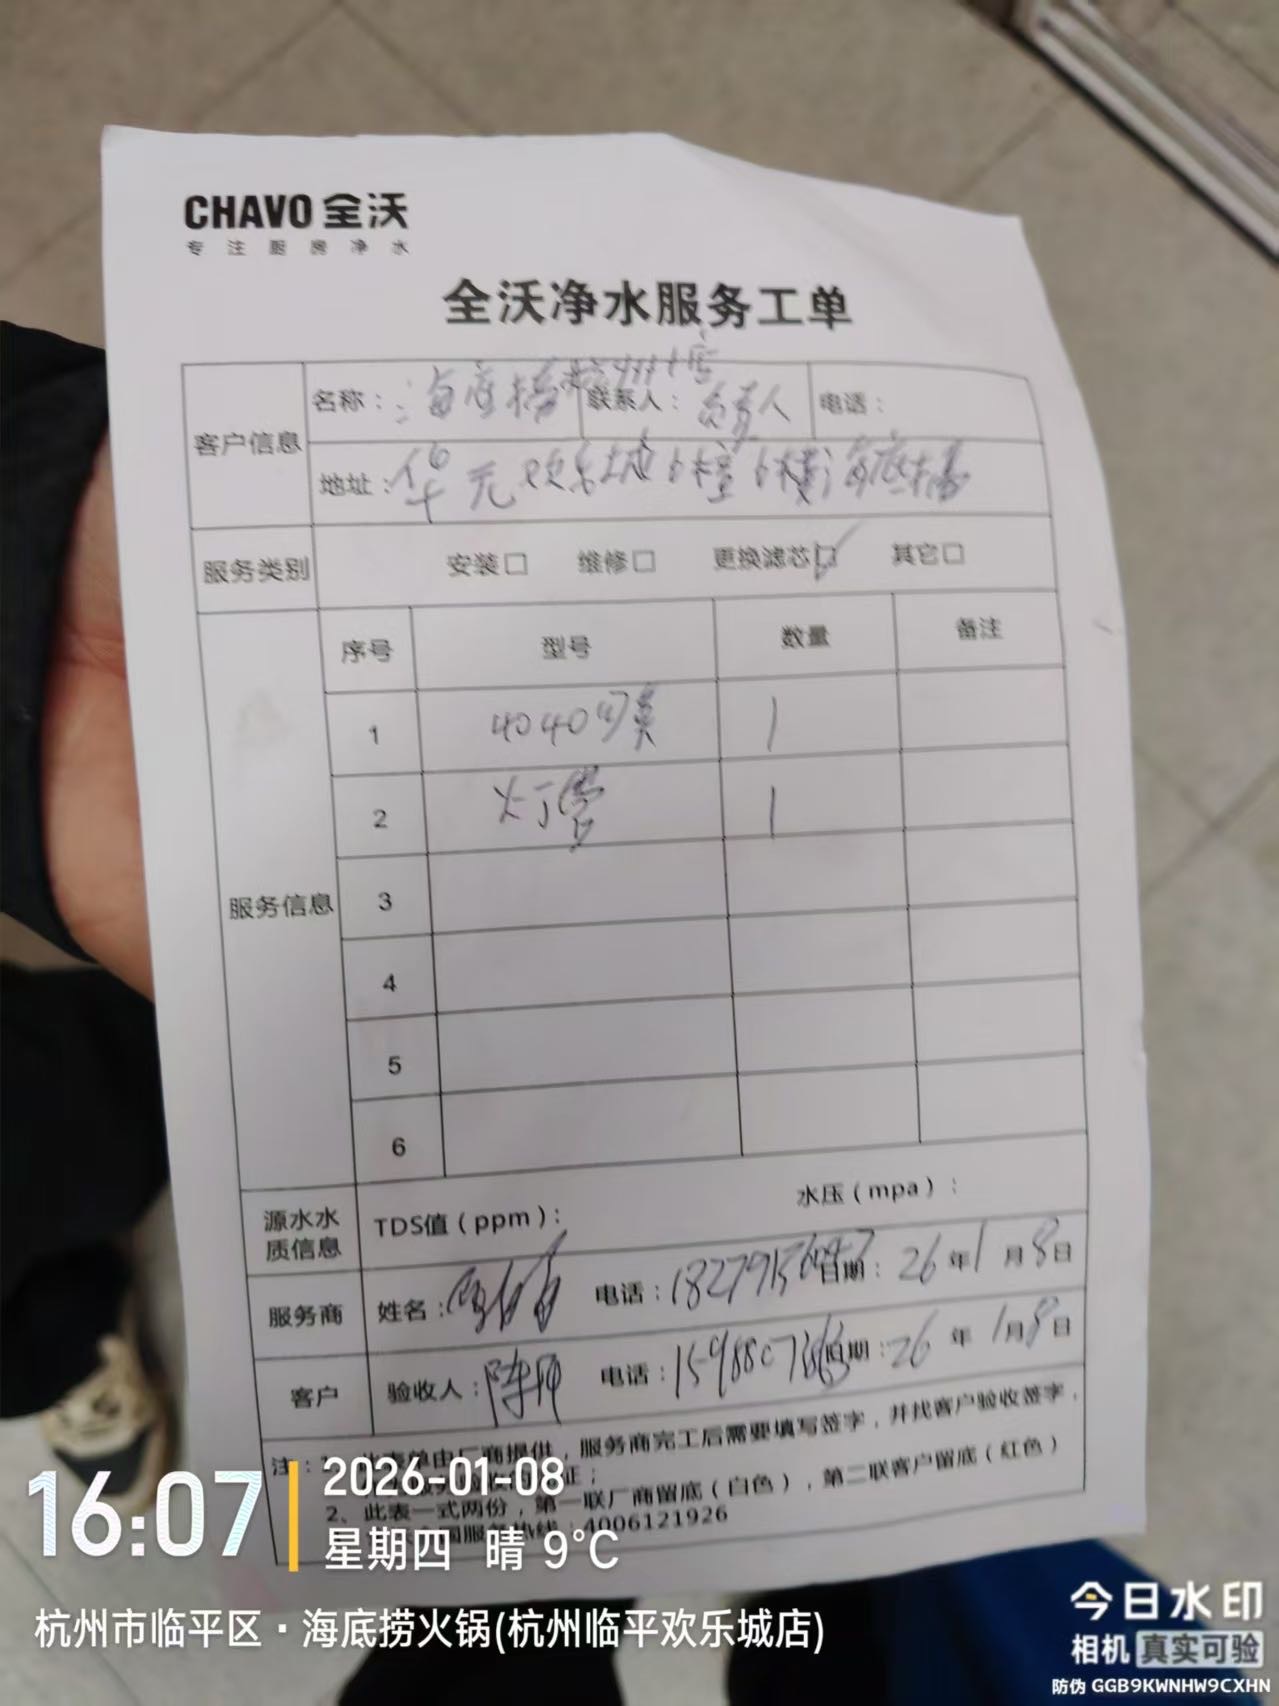 CHAVO 全沃
专注厨房净水
全沃净水服务工单
客户信息 名称：海底捞杭州十店 联系人：负责人 电话：
地址：华元欢乐城6幢6楼海底捞
服务类别 安装□ 维修□ 更换滤芯☑ 其它□
服务信息 序号 型号 数量 备注
1 4040膜 1
2 灯管 1
3
4
5
6
源水水质信息 TDS值（ppm）： 水压（mpa）：
服务商 姓名： 电话： 日期：26年1月8日
客户 验收人： 电话： 日期：26年1月8日
注：1、此表单由厂商提供，服务商完工后需要填写签字，并找客户验收签字，
证；
2、此表一式两份，第一联厂商留底（白色），第二联客户留底（红色）
全国服务热线：4006121926
16:07
2026-01-08
星期四 晴 9℃
杭州市临平区·海底捞火锅(杭州临平欢乐城店)
今日水印
相机 真实可验
防伪 GGB9KWNHW9CXHN